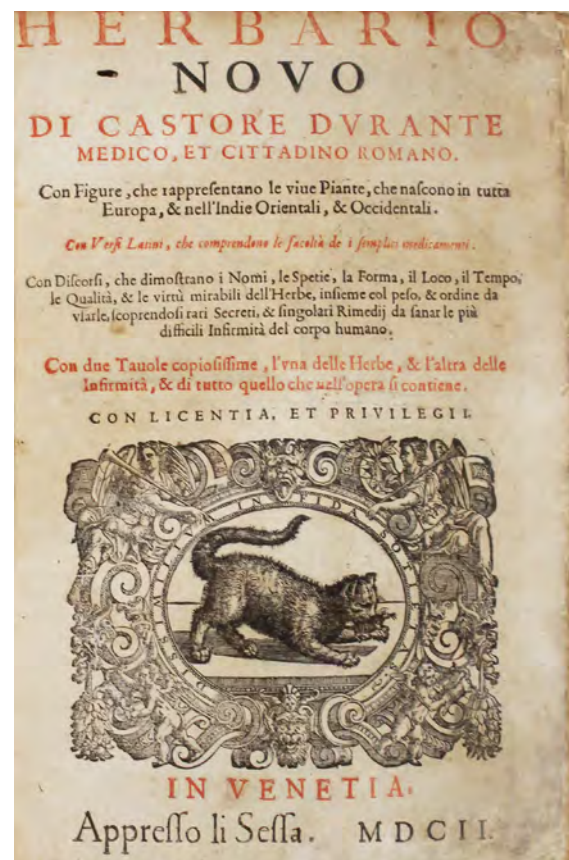 HERBARIO
NOVO
DI CASTORE DVRANTE
MEDICO, ET CITTADINO ROMANO.
Con Figure, che rappreſentano le viue Piante, che naſcono in tutta
Europa, & nell'Indie Orientali, & Occidentali.
Con Verſi Latini, che comprendono le facoltà de i ſemplici medicamenti.
Con Diſcorſi, che dimoſtrano i Nomi, le Spetie, la Forma, il Loco, il Tempo,
le Qualità, & le virtù mirabili dell'Herbe, inſieme col peſo, & ordine da
vſarle, ſcoprendoſi rari Secreti, & ſingolari Rimedij da ſanar le più
difficili Infirmità del corpo humano.
Con due Tauole copioſiſſime, l'vna delle Herbe, & l'altra delle
Infirmità, & di tutto quello che nell'opera ſi contiene.
CON LICENTIA, ET PRIVILEGII.
DISSIMILIVM INFIDA SOCIETAS
IN VENETIA.
Appreſſo li Seſſa. MDCII.